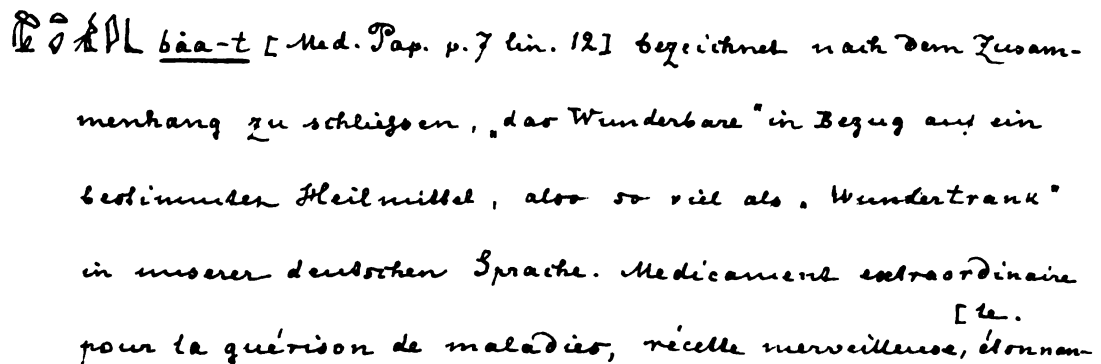 båa-t [Med. Pap. p. 7 lin. 12] bezeichnet nach dem Zusam-
menhang zu schliefsen, „das Wunderbare“ in Bezug auf ein
bestimmtes Heilmittel, also so viel als „Wundertrank“
in unserer deutschen Sprache. Medicament extraordinaire
pour la guérison de maladies, récette merveilleuse, étonnan-
[te.